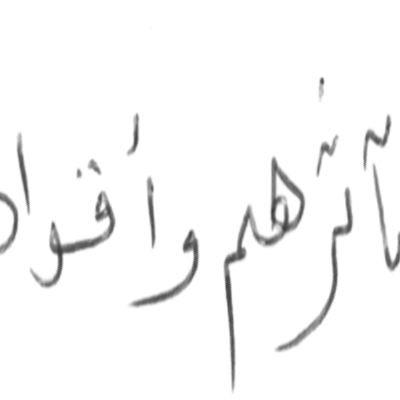 مآثرهم وأقوا